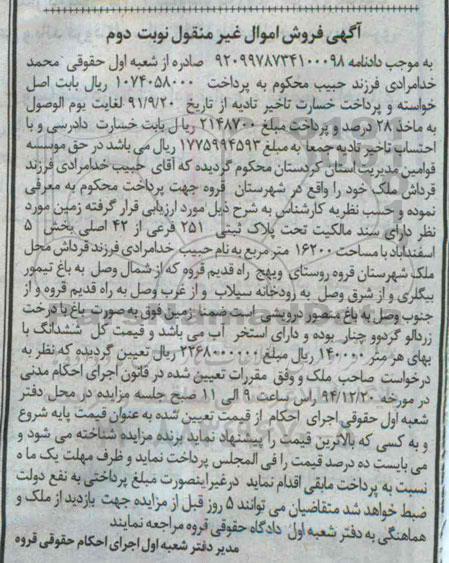 آگهی فروش اموال غیر منقول نوبت دوم
به موجب دادنامه ۹۲۰۹۹۷۸۷۳۴۱۰۰۰۹۸ صادره از شعبه اول حقوقی محمد
خدامرادی فرزند حبیب محکوم به پرداخت ۱۰۷۴۰۵۸۰۰۰ ریال بابت اصل
خواسته و پرداخت خسارت تاخیر تادیه از تاریخ ۹۱/۹/۲۰ لغایت یوم الوصول
به ماخذ ۲۸ درصد و پرداخت مبلغ ۲۱۴۸۷۰۰۰ ریال بابت خسارت دادرسی و با
احتساب تاخیر تادیه جمعا به مبلغ ۱۷۷۵۹۹۴۵۹۳ ریال می باشد در حق موسسه
قوامین مدیریت استان کردستان محکوم گردیده که آقای حبیب خدامرادی فرزند
قرداش ملک خود را واقع در شهرستان قروه جهت پرداخت محکوم به معرفی
نموده و حسب نظریه کارشناس به شرح ذیل مورد ارزیابی قرار گرفته زمین مورد
نظر دارای سند مالکیت تحت پلاک ثبتی ۲۵۱ فرعی از ۴۲ اصلی بخش ۵
اسفندآباد با مساحت ۱۶۲۰۰ متر مربع به نام حبیب خدامرادی فرزند قرداش محل
ملک شهرستان قروه روستای ویهج راه قدیم قروه که از شمال وصل به باغ تیمور
بیگلری و از شرق وصل به رودخانه سیلاب و از غرب وصل به راه قدیم قروه و از
جنوب وصل به باغ منصور درویشی است ضمنا زمین فوق به صورت باغ با درخت
زردالو گردوو چنار بوده و دارای استخر آب می باشد و قیمت کل ششدانگ با
بهای هر متر ۱۴۰۰۰۰ ریال مبلغ ۲۲۶۸۰۰۰۰۰۰ ریال تعیین گردیده که نظر به
درخواست صاحب ملک و وفق مقررات تعیین شده در قانون اجرای احکام مدنی
در مورخه ۹۴/۱۲/۲۰ راس ساعت ۹ الی ۱۱ صبح جلسه مزایده در محل دفتر
شعبه اول حقوقی اجرای احکام از قیمت تعیین شده به عنوان قیمت پایه شروع
و به کسی که بالاترین قیمت را پیشنهاد نماید برنده مزایده شناخته می شود و
می بایست ده درصد قیمت را فی المجلس پرداخت نماید و ظرف مهلت یک ماه
نسبت به پرداخت مابقی اقدام نماید درغیراینصورت مبلغ پرداختی به نفع دولت
ضبط خواهد شد متقاضیان می توانند ۵ روز قبل از مزایده جهت بازدید از ملک و
هماهنگی به دفتر شعبه اول دادگاه حقوقی قروه مراجعه نمایند
مدیر دفتر شعبه اول اجرای احکام حقوقی قروه